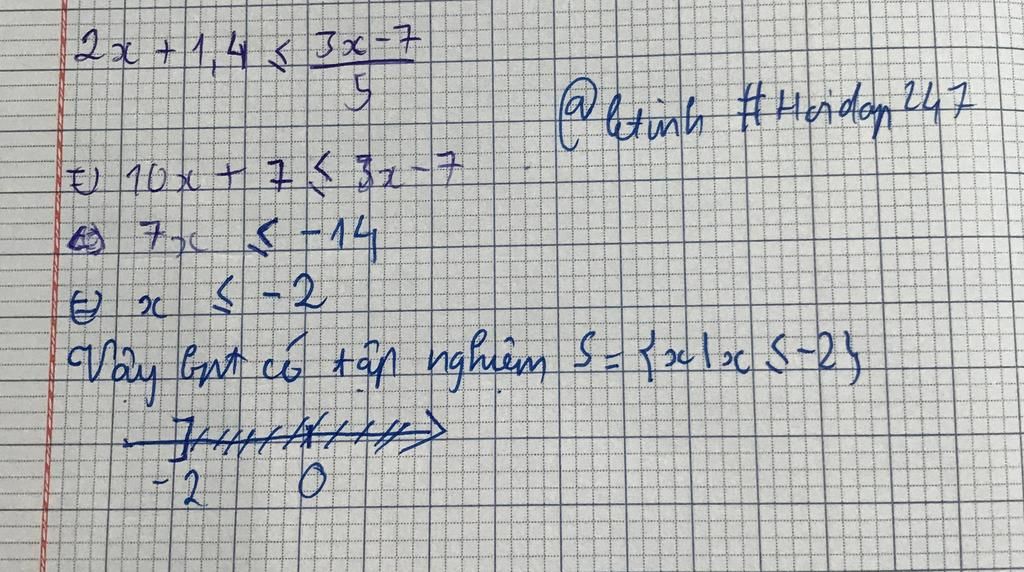 2x + 1,4 ≤ 3x - 7 / 5
@ #Hoidap247
⇔ 10x + 7 ≤ 3x - 7
⇔ 7x ≤ -14
⇔ x ≤ -2
Vậy bpt có tập nghiệm S = {x | x ≤ -2}
-2 0